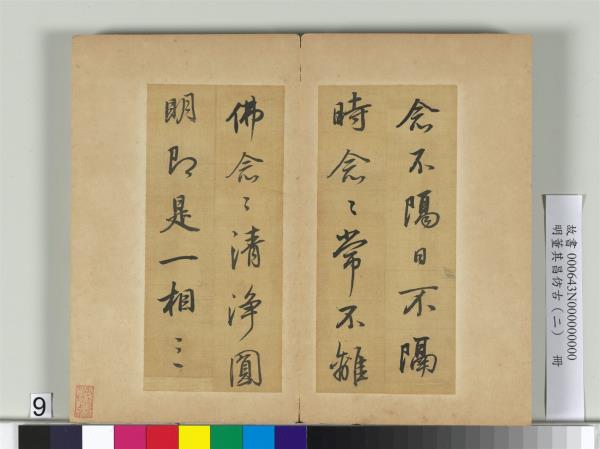 念不隔日不隔
時念〻常不離
佛念〻清淨圓
明即是一相〻三
故書 000643N000000000
明董其昌仿古（二） 冊
9